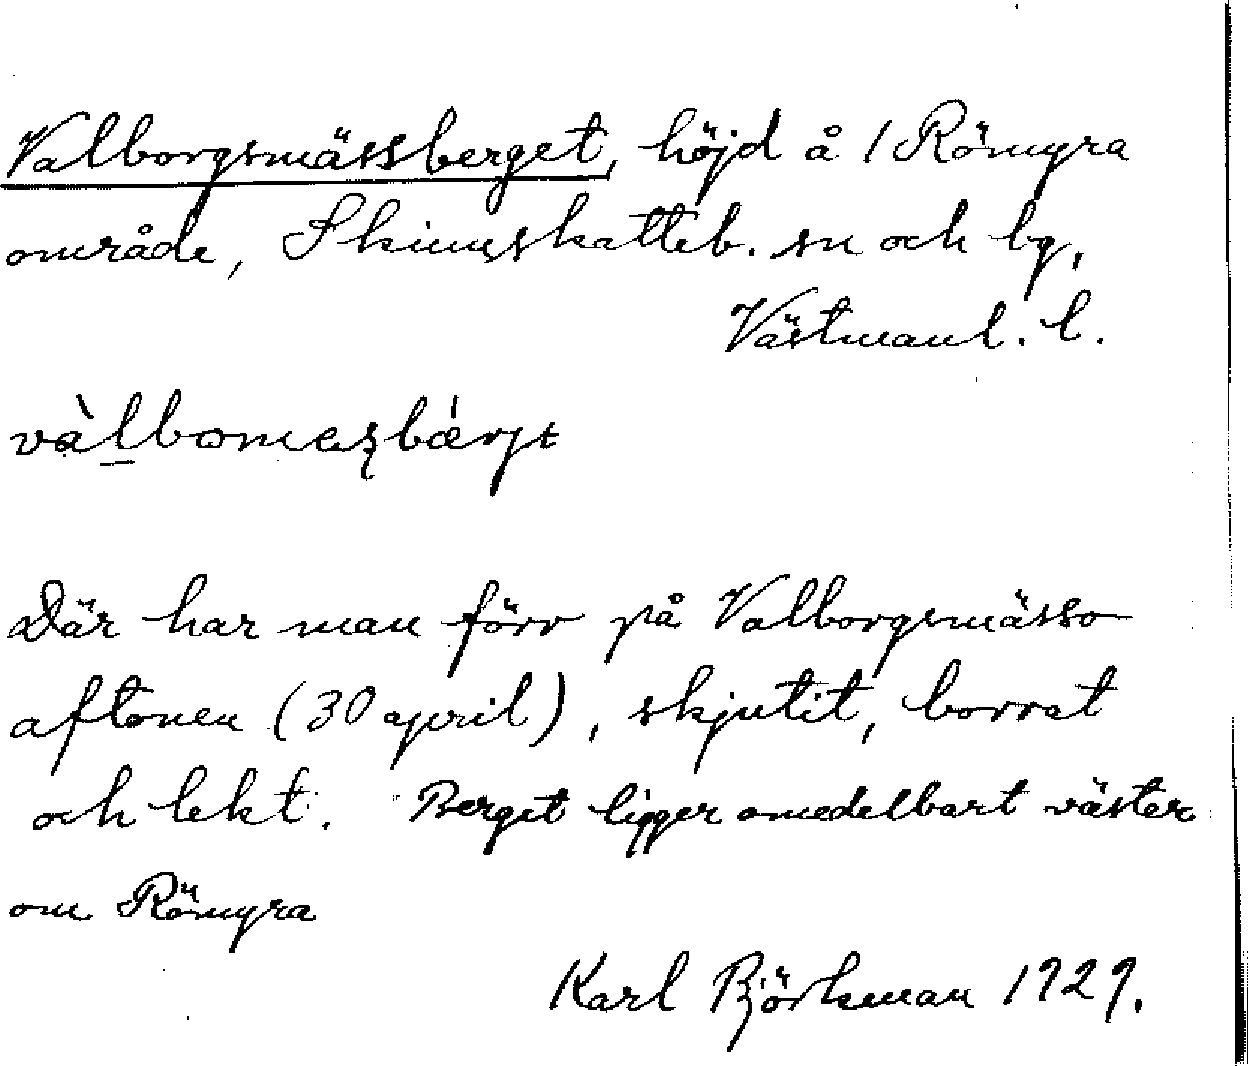 Valborgsmässberget, höjd å 1 Römyra
område, Skinnskatteb. sn och bg,
Västmanl. l.
Där har man förr på Valborgsmässo
aftonen (30 april), skjutit, borrat
och lekt. Berget ligger omedelbart väster
om Römyra
Karl Björkman 1929.